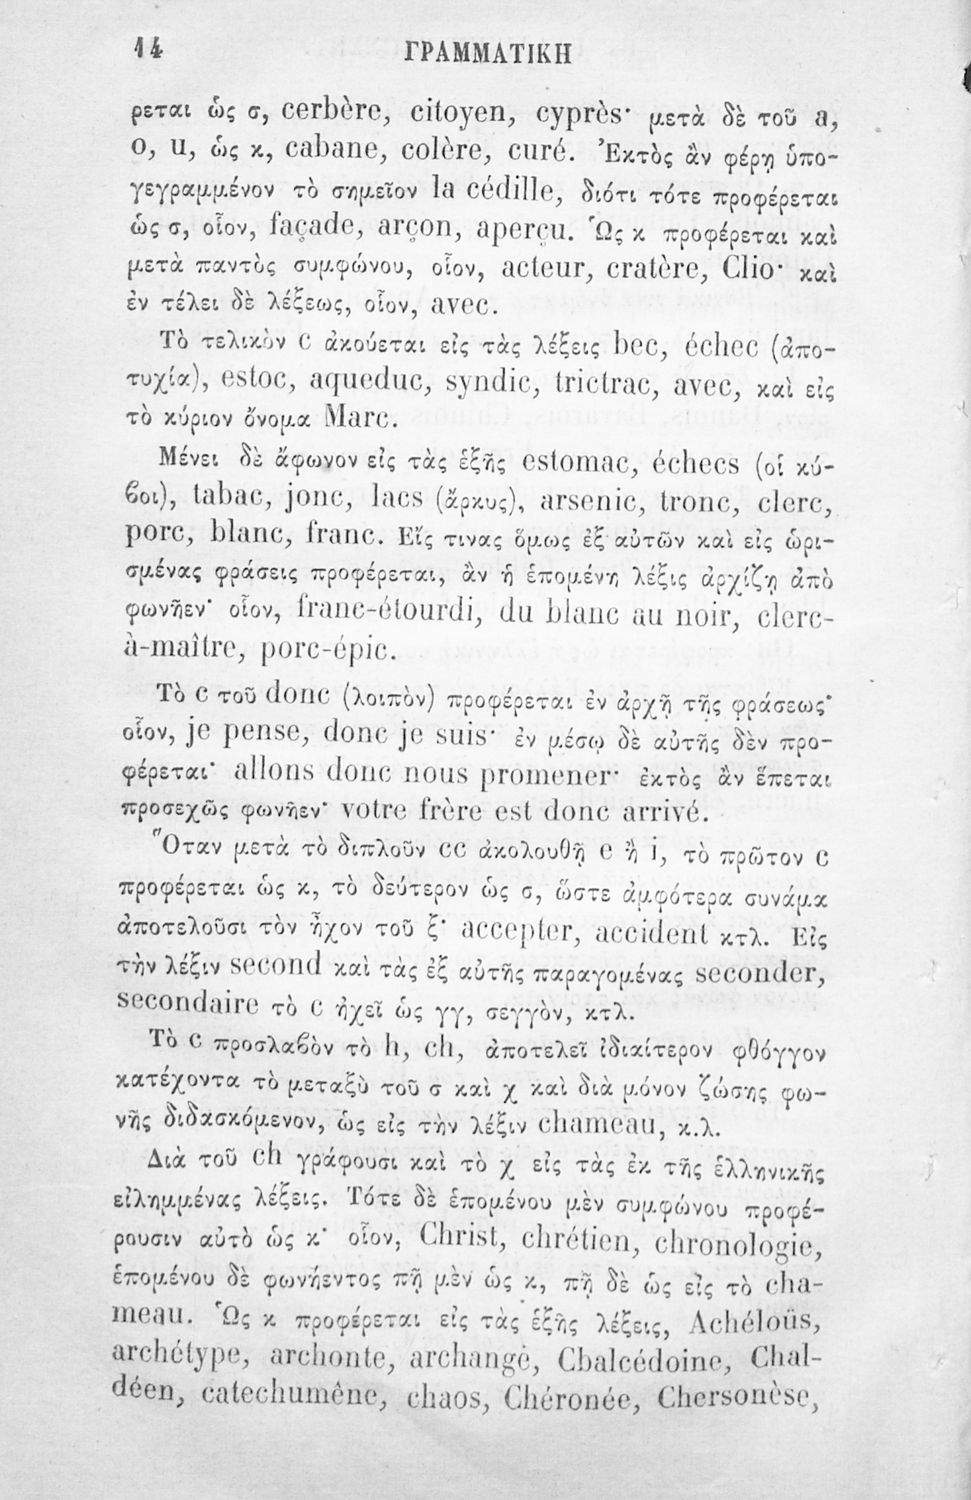 14 ΓΡΑΜΜΑΤΙΚΗ
ρεται ὡς σ, cerbère, citoyen, cyprès· μετὰ δὲ τοῦ a,
o, u, ὡς κ, cabane, colère, curé. Ἐκτὸς ἂν φέρῃ ὑπο-
γεγραμμένον τὸ σημεῖον la cédille, διότι τότε προφέρεται
ὡς σ, οἷον, façade, arçon, aperçu. Ὡς κ προφέρεται καὶ
μετὰ παντὸς συμφώνου, οἷον, acteur, cratère, Clio· καὶ
ἐν τέλει δὲ λέξεως, οἷον, avec.
Τὸ τελικὸν c ἀκούεται εἰς τὰς λέξεις bec, échec (ἀπο-
τυχία), estoc, aqueduc, syndic, trictrac, avec, καὶ εἰς
τὸ κύριον ὄνομα Marc.
Μένει δὲ ἄφωνον εἰς τὰς ἑξῆς estomac, échecs (οἱ κύ-
ϐοι), tabac, jonc, lacs (ἄρκυς), arsenic, tronc, clerc,
porc, blanc, franc. Εἴς τινας ὅμως ἐξ αὐτῶν καὶ εἰς ὡρι-
σμένας φράσεις προφέρεται, ἂν ἡ ἑπομένη λέξις ἀρχίζῃ ἀπὸ
φωνῆεν· οἷον, franc-étourdi, du blanc au noir, clerc-
à-maître, porc-épic.
Τὸ c τοῦ donc (λοιπὸν) προφέρεται ἐν ἀρχῇ τῆς φράσεως·
οἷον, je pense, donc je suis· ἐν μέσῳ δὲ αὐτῆς δὲν προ-
φέρεται· allons donc nous promener· ἐκτὸς ἂν ἕπεται
προσεχῶς φωνῆεν· votre frère est donc arrivé.
Ὅταν μετὰ τὸ διπλοῦν cc ἀκολουθῇ e ἢ i, τὸ πρῶτον c
προφέρεται ὡς κ, τὸ δεύτερον ὡς σ, ὥστε ἀμφότερα συνάμα
ἀποτελοῦσι τὸν ἦχον τοῦ ξ· accepter, accident κτλ. Εἰς
τὴν λέξιν second καὶ τὰς ἐξ αὐτῆς παραγομένας seconder,
secondaire τὸ c ἠχεῖ ὡς γγ, σεγγὸν, κτλ.
Τὸ c προσλαϐὸν τὸ h, ch, ἀποτελεῖ ἰδιαίτερον φθόγγον
κατέχοντα τὸ μεταξὺ τοῦ σ καὶ χ καὶ διὰ μόνον ζώσης φω-
νῆς διδασκόμενον, ὡς εἰς τὴν λέξιν chameau, κ.λ.
Διὰ τοῦ ch γράφουσι καὶ τὸ χ εἰς τὰς ἐκ τῆς ἑλληνικῆς
εἰλημμένας λέξεις. Τότε δὲ ἑπομένου μὲν συμφώνου προφέ-
ρουσιν αὐτὸ ὡς κ· οἷον, Christ, chrétien, chronologie,
ἑπομένου δὲ φωνήεντος πῇ μὲν ὡς κ, πῇ δὲ ὡς εἰς τὸ cha-
meau. Ὡς κ προφέρεται εἰς τὰς ἑξῆς λέξεις, Achéloüs,
archétype, archonte, archange, Chalcédoine, Chal-
déen, catechumène, chaos, Chéronée, Chersonèse,